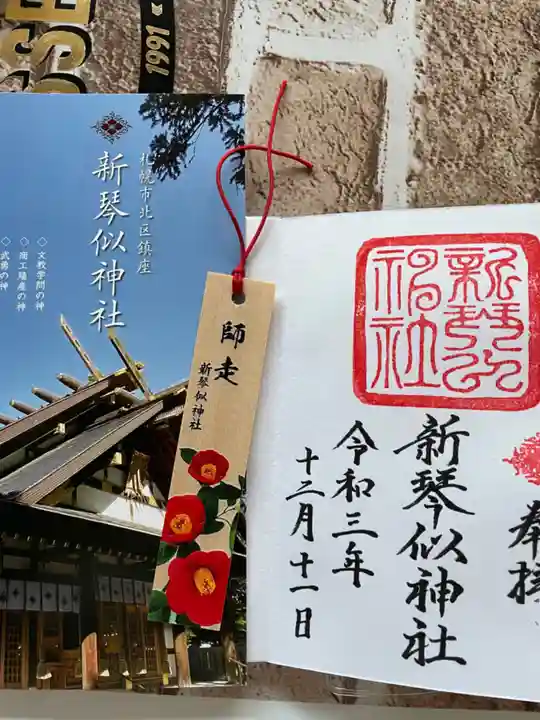 1991
札幌市北区鎮座
新琴似神社
◇文教学問の神
◇商工殖産の神
◇武勇の神
師走
新琴似神社
新琴似神社
奉拝
新琴似神社
令和三年
十二月十一日